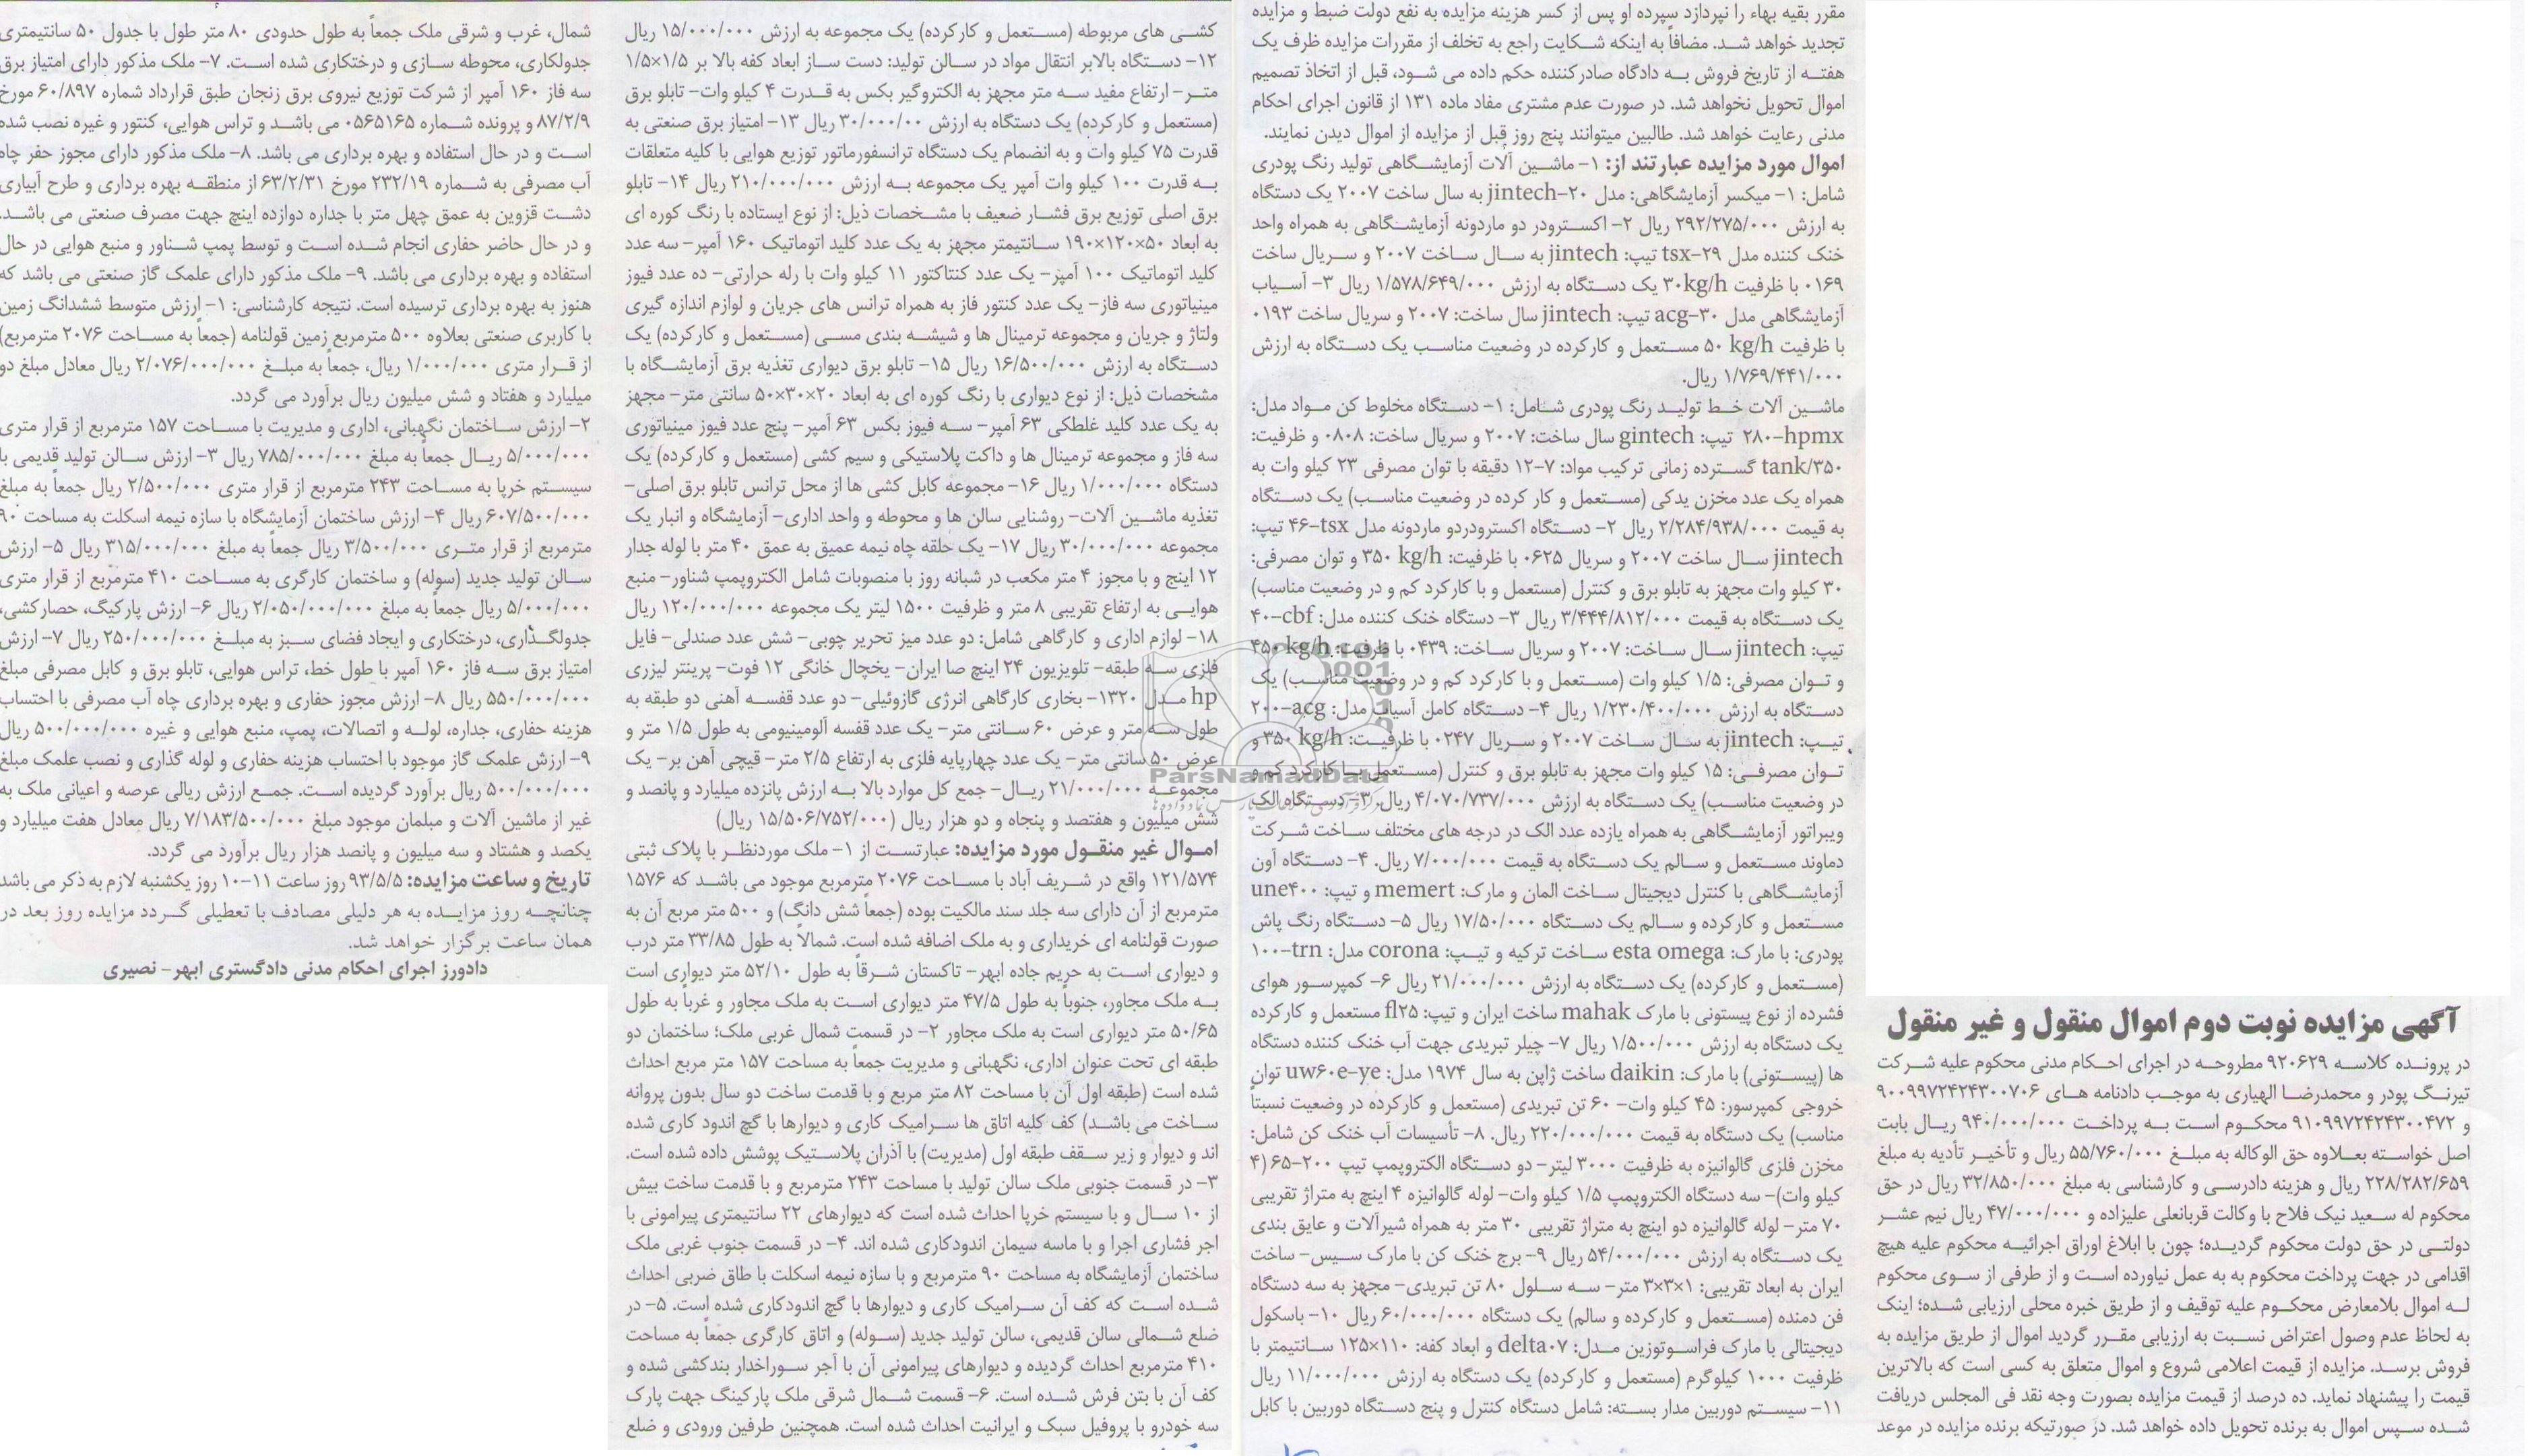 آگهی مزایده نوبت دوم اموال منقول و غیر منقول
در پرونده کلاسه ۹۲۰۶۲۹ مطروحه در اجرای احکام مدنی محکوم علیه شرکت
تیرنگ پودر و محمدرضا الهیاری به موجب دادنامه های ۹۰۰۹۹۷۲۴۲۴۳۰۰۷۰۶
و ۹۱۰۹۹۷۲۴۲۴۳۰۰۴۷۲ محکوم است به پرداخت ۹۴۰/۰۰۰/۰۰۰ ریال بابت
اصل خواسته بعلاوه حق الوکاله به مبلغ ۵۵/۷۶۰/۰۰۰ ریال و تأخیر تأدیه به مبلغ
۲۲۸/۲۸۲/۶۵۹ ریال و هزینه دادرسی و کارشناسی به مبلغ ۳۲/۸۵۰/۰۰۰ ریال در حق
محکوم له سعید نیک فلاح با وکالت قربانعلی علیزاده و ۴۷/۰۰۰/۰۰۰ ریال نیم عشر
دولتی در حق دولت محکوم گردیده؛ چون با ابلاغ اوراق اجرائیه محکوم علیه هیچ
اقدامی در جهت پرداخت محکوم به به عمل نیاورده است و از طرفی از سوی محکوم
له اموال بلامعارض محکوم علیه توقیف و از طریق خبره محلی ارزیابی شده؛ اینک
به لحاظ عدم وصول اعتراض نسبت به ارزیابی مقرر گردید اموال از طریق مزایده به
فروش برسد. مزایده از قیمت اعلامی شروع و اموال متعلق به کسی است که بالاترین
قیمت را پیشنهاد نماید. ده درصد از قیمت مزایده بصورت وجه نقد فی المجلس دریافت
شده سپس اموال به برنده تحویل داده خواهد شد. در صورتیکه برنده مزایده در موعد
مقرر بقیه بهاء را نپردازد سپرده او پس از کسر هزینه مزایده به نفع دولت ضبط و مزایده
تجدید خواهد شد. مضافاً به اینکه شکایت راجع به تخلف از مقررات مزایده ظرف یک
هفته از تاریخ فروش به دادگاه صادرکننده حکم داده می شود، قبل از اتخاذ تصمیم
اموال تحویل نخواهد شد. در صورت عدم مشتری مفاد ماده ۱۳۱ از قانون اجرای احکام
مدنی رعایت خواهد شد. طالبین میتوانند پنج روز قبل از مزایده از اموال دیدن نمایند.
اموال مورد مزایده عبارتند از: ۱- ماشین آلات آزمایشگاهی تولید رنگ پودری
شامل: ۱- میکسر آزمایشگاهی: مدل jintech-۲۰ به سال ساخت ۲۰۰۷ یک دستگاه
به ارزش ۲۹۲/۲۷۵/۰۰۰ ریال ۲- اکسترودر دو ماردونه آزمایشگاهی به همراه واحد
خنک کننده مدل tsx-۲۹ تیپ: jintech به سال ساخت ۲۰۰۷ و سریال ساخت
۰۱۶۹ با ظرفیت ۳۰kg/h یک دستگاه به ارزش ۱/۵۷۸/۶۴۹/۰۰۰ ریال ۳- آسیاب
آزمایشگاهی مدل acg-۳۰ تیپ: jintech سال ساخت: ۲۰۰۷ و سریال ساخت ۰۱۹۳
با ظرفیت ۵۰ kg/h مستعمل و کارکرده در وضعیت مناسب یک دستگاه به ارزش
۱/۷۶۹/۴۴۱/۰۰۰ ریال.
ماشین آلات خط تولید رنگ پودری شامل: ۱- دستگاه مخلوط کن مواد مدل:
۲۸۰-hpmx تیپ: gintech سال ساخت: ۲۰۰۷ و سریال ساخت: ۰۸۰۸ و ظرفیت:
tank/۳۵۰ گسترده زمانی ترکیب مواد: ۷-۱۲ دقیقه با توان مصرفی ۲۳ کیلو وات به
همراه یک عدد مخزن یدکی (مستعمل و کار کرده در وضعیت مناسب) یک دستگاه
به قیمت ۲/۲۸۴/۹۳۸/۰۰۰ ریال ۲- دستگاه اکسترودردو ماردونه مدل ۴۶-tsx تیپ:
jintech سال ساخت ۲۰۰۷ و سریال ۰۶۲۵ با ظرفیت: ۳۵۰ kg/h و توان مصرفی:
۳۰ کیلو وات مجهز به تابلو برق و کنترل (مستعمل و با کارکرد کم و در وضعیت مناسب)
یک دستگاه به قیمت ۳/۴۴۴/۸۱۲/۰۰۰ ریال ۳- دستگاه خنک کننده مدل: ۴۰-cbf
تیپ: jintech سال ساخت: ۲۰۰۷ و سریال ساخت: ۰۴۳۹ با ظرفیت: ۴۵۰ kg/h
و توان مصرفی: ۱/۵ کیلو وات (مستعمل و با کارکرد کم و در وضعیت مناسب) یک
دستگاه به ارزش ۱/۲۳۰/۴۰۰/۰۰۰ ریال ۴- دستگاه کامل آسیاب مدل: ۲۰۰-acg
تیپ: jintech به سال ساخت ۲۰۰۷ و سریال ۰۲۴۷ با ظرفیت: ۳۵۰ kg/h و
توان مصرفی: ۱۵ کیلو وات مجهز به تابلو برق و کنترل (مستعمل با کارکرد کم و
در وضعیت مناسب) یک دستگاه به ارزش ۴/۰۷۰/۷۳۷/۰۰۰ ریال. ۳- دستگاه الک
ویبراتور آزمایشگاهی به همراه یازده عدد الک در درجه های مختلف ساخت شرکت
دماوند مستعمل و سالم یک دستگاه به قیمت ۷/۰۰۰/۰۰۰ ریال. ۴- دستگاه آون
آزمایشگاهی با کنترل دیجیتال ساخت المان و مارک: memert و تیپ: une۴۰۰
مستعمل و کارکرده و سالم یک دستگاه ۱۷/۵۰/۰۰۰ ریال ۵- دستگاه رنگ پاش
پودری: با مارک: esta omega ساخت ترکیه و تیپ: corona مدل: ۱۰۰-trn
(مستعمل و کارکرده) یک دستگاه به ارزش ۲۱/۰۰۰/۰۰۰ ریال ۶- کمپرسور هوای
فشرده از نوع پیستونی با مارک mahak ساخت ایران و تیپ: fl۲۵ مستعمل و کارکرده
یک دستگاه به ارزش ۱/۵۰۰/۰۰۰ ریال ۷- چیلر تبریدی جهت آب خنک کننده دستگاه
ها (پیستونی) با مارک: daikin ساخت ژاپن به سال ۱۹۷۴ مدل: uw۶۰e-ye توان
خروجی کمپرسور: ۴۵ کیلو وات- ۶۰ تن تبریدی (مستعمل و کارکرده در وضعیت نسبتاً
مناسب) یک دستگاه به قیمت ۲۲۰/۰۰۰/۰۰۰ ریال. ۸- تأسیسات آب خنک کن شامل:
مخزن فلزی گالوانیزه به ظرفیت ۳۰۰۰ لیتر- دو دستگاه الکتروپمپ تیپ ۲۰۰-۶۵ (۴
کیلو وات)- سه دستگاه الکتروپمپ ۱/۵ کیلو وات- لوله گالوانیزه ۴ اینچ به متراژ تقریبی
۷۰ متر- لوله گالوانیزه دو اینچ به متراژ تقریبی ۳۰ متر به همراه شیرآلات و عایق بندی
یک دستگاه به ارزش ۵۴/۰۰۰/۰۰۰ ریال ۹- برج خنک کن با مارک سیس- ساخت
ایران به ابعاد تقریبی: ۱×۳×۳ متر- سه سلول ۸۰ تن تبریدی- مجهز به سه دستگاه
فن دمنده (مستعمل و کارکرده و سالم) یک دستگاه ۶۰/۰۰۰/۰۰۰ ریال ۱۰- باسکول
دیجیتالی با مارک فراسوتوزین مدل: delta۰۷ و ابعاد کفه: ۱۱۰×۱۲۵ سانتیمتر با
ظرفیت ۱۰۰۰ کیلوگرم (مستعمل و کارکرده) یک دستگاه به ارزش ۱۱/۰۰۰/۰۰۰ ریال
۱۱- سیستم دوربین مدار بسته: شامل دستگاه کنترل و پنج دستگاه دوربین با کابل
کشی های مربوطه (مستعمل و کارکرده) یک مجموعه به ارزش ۱۵/۰۰۰/۰۰۰ ریال
۱۲- دستگاه بالابر انتقال مواد در سالن تولید: دست ساز ابعاد کفه بالا بر ۱/۵×۱/۵
متر- ارتفاع مفید سه متر مجهز به الکتروگیر بکس به قدرت ۴ کیلو وات- تابلو برق
(مستعمل و کارکرده) یک دستگاه به ارزش ۳۰/۰۰۰/۰۰ ریال ۱۳- امتیاز برق صنعتی به
قدرت ۷۵ کیلو وات و به انضمام یک دستگاه ترانسفورماتور توزیع هوایی با کلیه متعلقات
به قدرت ۱۰۰ کیلو وات آمپر یک مجموعه به ارزش ۲۱۰/۰۰۰/۰۰۰ ریال ۱۴- تابلو
برق اصلی توزیع برق فشار ضعیف با مشخصات ذیل: از نوع ایستاده با رنگ کوره ای
به ابعاد ۵۰×۱۲۰×۱۹۰ سانتیمتر مجهز به یک عدد کلید اتوماتیک ۱۶۰ آمپر- سه عدد
کلید اتوماتیک ۱۰۰ آمپر- یک عدد کنتاکتور ۱۱ کیلو وات با رله حرارتی- ده عدد فیوز
مینیاتوری سه فاز- یک عدد کنتور فاز به همراه ترانس های جریان و لوازم اندازه گیری
ولتاژ و جریان و مجموعه ترمینال ها و شیشه بندی مسی (مستعمل و کارکرده) یک
دستگاه به ارزش ۱۶/۵۰۰/۰۰۰ ریال ۱۵- تابلو برق دیواری تغذیه برق آزمایشگاه با
مشخصات ذیل: از نوع دیواری با رنگ کوره ای به ابعاد ۲۰×۳۰×۵۰ سانتی متر- مجهز
به یک عدد کلید غلطکی ۶۳ آمپر- سه فیوز بکس ۶۳ آمپر- پنج عدد فیوز مینیاتوری
سه فاز و مجموعه ترمینال ها و داکت پلاستیکی و سیم کشی (مستعمل و کارکرده) یک
دستگاه ۱/۰۰۰/۰۰۰ ریال ۱۶- مجموعه کابل کشی ها از محل ترانس تابلو برق اصلی-
تغذیه ماشین آلات- روشنایی سالن ها و محوطه و واحد اداری- آزمایشگاه و انبار یک
مجموعه ۳۰/۰۰۰/۰۰۰ ریال ۱۷- یک حلقه چاه نیمه عمیق به عمق ۴۰ متر با لوله جدار
۱۲ اینچ و با مجوز ۴ متر مکعب در شبانه روز با منصوبات شامل الکتروپمپ شناور- منبع
هوایی به ارتفاع تقریبی ۸ متر و ظرفیت ۱۵۰۰ لیتر یک مجموعه ۱۲۰/۰۰۰/۰۰۰ ریال
۱۸- لوازم اداری و کارگاهی شامل: دو عدد میز تحریر چوبی- شش عدد صندلی- فایل
فلزی سه طبقه- تلویزیون ۲۴ اینچ صا ایران- یخچال خانگی ۱۲ فوت- پرینتر لیزری
hp مدل ۱۳۲۰- بخاری کارگاهی انرژی گازوئیلی- دو عدد قفسه آهنی دو طبقه به
طول سه متر و عرض ۶۰ سانتی متر- یک عدد قفسه آلومینیومی به طول ۱/۵ متر و
عرض ۵۰ سانتی متر- یک عدد چهارپایه فلزی به ارتفاع ۲/۵ متر- قیچی آهن بر- یک
مجموعه ۲۱/۰۰۰/۰۰۰ ریال- جمع کل موارد بالا به ارزش پانزده میلیارد و پانصد و
شش میلیون و هفتصد و پنجاه و دو هزار ریال (۱۵/۵۰۶/۷۵۲/۰۰۰ ریال)
اموال غیر منقول مورد مزایده: عبارتست از ۱- ملک موردنظر با پلاک ثبتی
۱۲۱/۵۷۴ واقع در شریف آباد با مساحت ۲۰۷۶ مترمربع موجود می باشد که ۱۵۷۶
مترمربع از آن دارای سه جلد سند مالکیت بوده (جمعاً شش دانگ) و ۵۰۰ متر مربع آن به
صورت قولنامه ای خریداری و به ملک اضافه شده است. شمالاً به طول ۳۳/۸۵ متر درب
و دیواری است به حریم جاده ابهر- تاکستان شرقاً به طول ۵۲/۱۰ متر دیواری است
به ملک مجاور، جنوباً به طول ۴۷/۵ متر دیواری است به ملک مجاور و غرباً به طول
۵۰/۶۵ متر دیواری است به ملک مجاور ۲- در قسمت شمال غربی ملک؛ ساختمان دو
طبقه ای تحت عنوان اداری، نگهبانی و مدیریت جمعاً به مساحت ۱۵۷ متر مربع احداث
شده است (طبقه اول آن با مساحت ۸۲ متر مربع و با قدمت ساخت دو سال بدون پروانه
ساخت می باشد) کف کلیه اتاق ها سرامیک کاری و دیوارها با گچ اندود کاری شده
اند و دیوار و زیر سقف طبقه اول (مدیریت) با آذران پلاستیک پوشش داده شده است.
۳- در قسمت جنوبی ملک سالن تولید با مساحت ۲۴۳ مترمربع و با قدمت ساخت بیش
از ۱۰ سال و با سیستم خرپا احداث شده است که دیوارهای ۲۲ سانتیمتری پیرامونی با
اجر فشاری اجرا و با ماسه سیمان اندودکاری شده اند. ۴- در قسمت جنوب غربی ملک
ساختمان آزمایشگاه به مساحت ۹۰ مترمربع و با سازه نیمه اسکلت با طاق ضربی احداث
شده است که کف آن سرامیک کاری و دیوارها با گچ اندودکاری شده است. ۵- در
ضلع شمالی سالن قدیمی، سالن تولید جدید (سوله) و اتاق کارگری جمعاً به مساحت
۴۱۰ مترمربع احداث گردیده و دیوارهای پیرامونی آن با آجر سوراخدار بندکشی شده و
کف آن با بتن فرش شده است. ۶- قسمت شمال شرقی ملک پارکینگ جهت پارک
سه خودرو با پروفیل سبک و ایرانیت احداث شده است. همچنین طرفین ورودی و ضلع
شمال، غرب و شرقی ملک جمعاً به طول حدودی ۸۰ متر طول با جدول ۵۰ سانتیمتری
جدولکاری، محوطه سازی و درختکاری شده است. ۷- ملک مذکور دارای امتیاز برق
سه فاز ۱۶۰ آمپر از شرکت توزیع نیروی برق زنجان طبق قرارداد شماره ۶۰/۸۹۷ مورخ
۸۷/۲/۹ و پرونده شماره ۰۵۶۵۱۶۵ می باشد و تراس هوایی، کنتور و غیره نصب شده
است و در حال استفاده و بهره برداری می باشد. ۸- ملک مذکور دارای مجوز حفر چاه
آب مصرفی به شماره ۲۳۲/۱۹ مورخ ۶۳/۲/۳۱ از منطقه بهره برداری و طرح آبیاری
دشت قزوین به عمق چهل متر با جداره دوازده اینچ جهت مصرف صنعتی می باشد.
و در حال حاضر حفاری انجام شده است و توسط پمپ شناور و منبع هوایی در حال
استفاده و بهره برداری می باشد. ۹- ملک مذکور دارای علمک گاز صنعتی می باشد که
هنوز به بهره برداری نرسیده است. نتیجه کارشناسی: ۱- ارزش متوسط ششدانگ زمین
با کاربری صنعتی بعلاوه ۵۰۰ مترمربع زمین قولنامه (جمعاً به مساحت ۲۰۷۶ مترمربع)
از قرار متری ۱/۰۰۰/۰۰۰ ریال، جمعاً به مبلغ ۲/۰۷۶/۰۰۰/۰۰۰ ریال معادل مبلغ دو
میلیارد و هفتاد و شش میلیون ریال برآورد می گردد.
۲- ارزش ساختمان نگهبانی، اداری و مدیریت با مساحت ۱۵۷ مترمربع از قرار متری
۵/۰۰۰/۰۰۰ ریال جمعاً به مبلغ ۷۸۵/۰۰۰/۰۰۰ ریال ۳- ارزش سالن تولید قدیمی با
سیستم خرپا به مساحت ۲۴۳ مترمربع از قرار متری ۲/۵۰۰/۰۰۰ ریال جمعاً به مبلغ
۶۰۷/۵۰۰/۰۰۰ ریال ۴- ارزش ساختمان آزمایشگاه با سازه نیمه اسکلت به مساحت ۹۰
مترمربع از قرار متری ۳/۵۰۰/۰۰۰ ریال جمعاً به مبلغ ۳۱۵/۰۰۰/۰۰۰ ریال ۵- ارزش
سالن تولید جدید (سوله) و ساختمان کارگری به مساحت ۴۱۰ مترمربع از قرار متری
۵/۰۰۰/۰۰۰ ریال جمعاً به مبلغ ۲/۰۵۰/۰۰۰/۰۰۰ ریال ۶- ارزش پارکیگ، حصارکشی،
جدولگذاری، درختکاری و ایجاد فضای سبز به مبلغ ۲۵۰/۰۰۰/۰۰۰ ریال ۷- ارزش
امتیاز برق سه فاز ۱۶۰ آمپر با طول خط، تراس هوایی، تابلو برق و کابل مصرفی مبلغ
۵۵۰/۰۰۰/۰۰۰ ریال ۸- ارزش مجوز حفاری و بهره برداری چاه آب مصرفی با احتساب
هزینه حفاری، جداره، لوله و اتصالات، پمپ، منبع هوایی و غیره ۵۰۰/۰۰۰/۰۰۰ ریال
۹- ارزش علمک گاز موجود با احتساب هزینه حفاری و لوله گذاری و نصب علمک مبلغ
۵۰۰/۰۰۰/۰۰۰ ریال برآورد گردیده است. جمع ارزش ریالی عرصه و اعیانی ملک به
غیر از ماشین آلات و مبلمان موجود مبلغ ۷/۱۸۳/۵۰۰/۰۰۰ ریال معادل هفت میلیارد و
یکصد و هشتاد و سه میلیون و پانصد هزار ریال برآورد می گردد.
تاریخ و ساعت مزایده: ۹۳/۵/۵ روز ساعت ۱۱-۱۰ روز یکشنبه لازم به ذکر می باشد
چنانچه روز مزایده به هر دلیلی مصادف با تعطیلی گردد مزایده روز بعد در
همان ساعت برگزار خواهد شد.
دادورز اجرای احکام مدنی دادگستری ابهر- نصیری
ParsNamadData